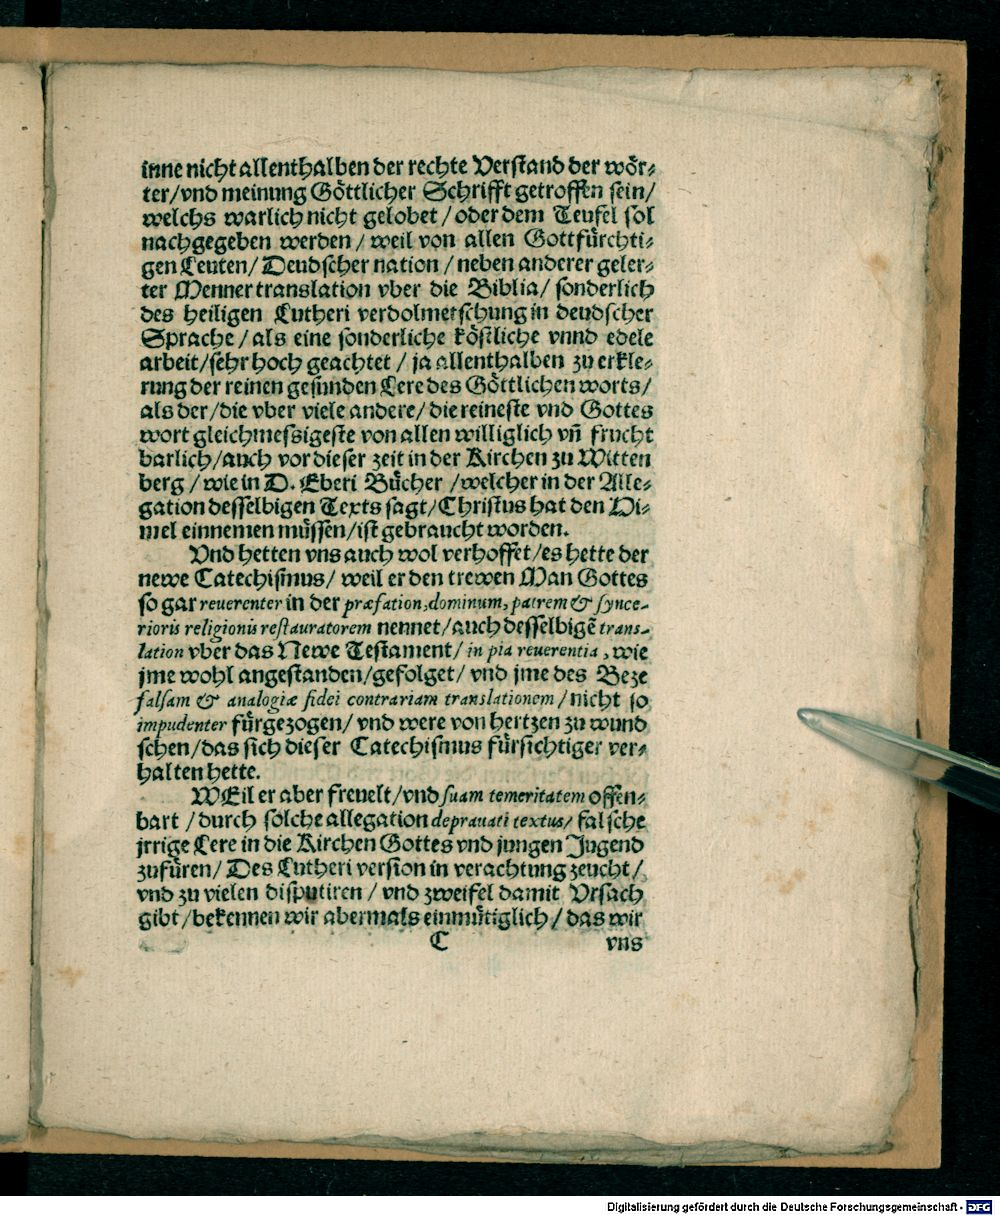 inne nicht allenthalben der rechte Verstand der wör⸗
ter/vnd meinung Göttlicher Schrifft getroffen sein/
welchs warlich nicht gelobet/oder dem Teufel sol
nachgegeben werden/weil von allen Gottfürchti⸗
gen Leuten/Deudscher nation/neben anderer geler⸗
ter Menner translation vber die Biblia/sonderlich
des heiligen Lutheri verdolmetschung in deudscher
Sprache/als eine sonderliche köstliche vnnd edele
arbeit/sehr hoch geachtet/ja allenthalben zu erkle⸗
rung der reinen gesunden Lere des Göttlichen worts/
als der/die vber viele andere/die reineste vnd Gottes
wort gleichmessigeste von allen williglich vñ frucht
barlich/auch vor dieser zeit in der Kirchen zu Witten
berg/wie in D. Eberi Bücher/welcher in der Alle⸗
gation desselbigen Texts sagt/Christus hat den Hi⸗
mel einnemen müssen/ist gebraucht worden.
Vnd hetten vns auch wol verhoffet/es hette der
newe Catechismus/weil er den trewen Man Gottes
so gar reuerenter in der præfation,dominum, patrem & synce-
rioris religionis restauratorem nennet/auch desselbigẽ trans-
lation vber das Newe Testament/in pia reuerentia, wie
jme wohl angestanden/gefolget/vnd jme des Beze
falsam & analogiæ fidei contrariam translationem/nicht so
impudenter fürgezogen/vnd were von hertzen zu wund
schen/das sich dieser Catechismus fürsichtiger ver⸗
halten hette.
WEil er aber freuelt/vnd suam temeritatem offen⸗
bart/durch solche allegation deprauati textus/falsche
jrrige Lere in die Kirchen Gottes vnd jungen Jugend
zufüren/Des Lutheri version in verachtung zeucht/
vnd zu vielen disputiren/vnd zweifel damit Vrsach
gibt/bekennen wir abermals einmütiglich/das wir
C vns
Digitalisierung gefördert durch die Deutsche Forschungsgemeinschaft - DFG